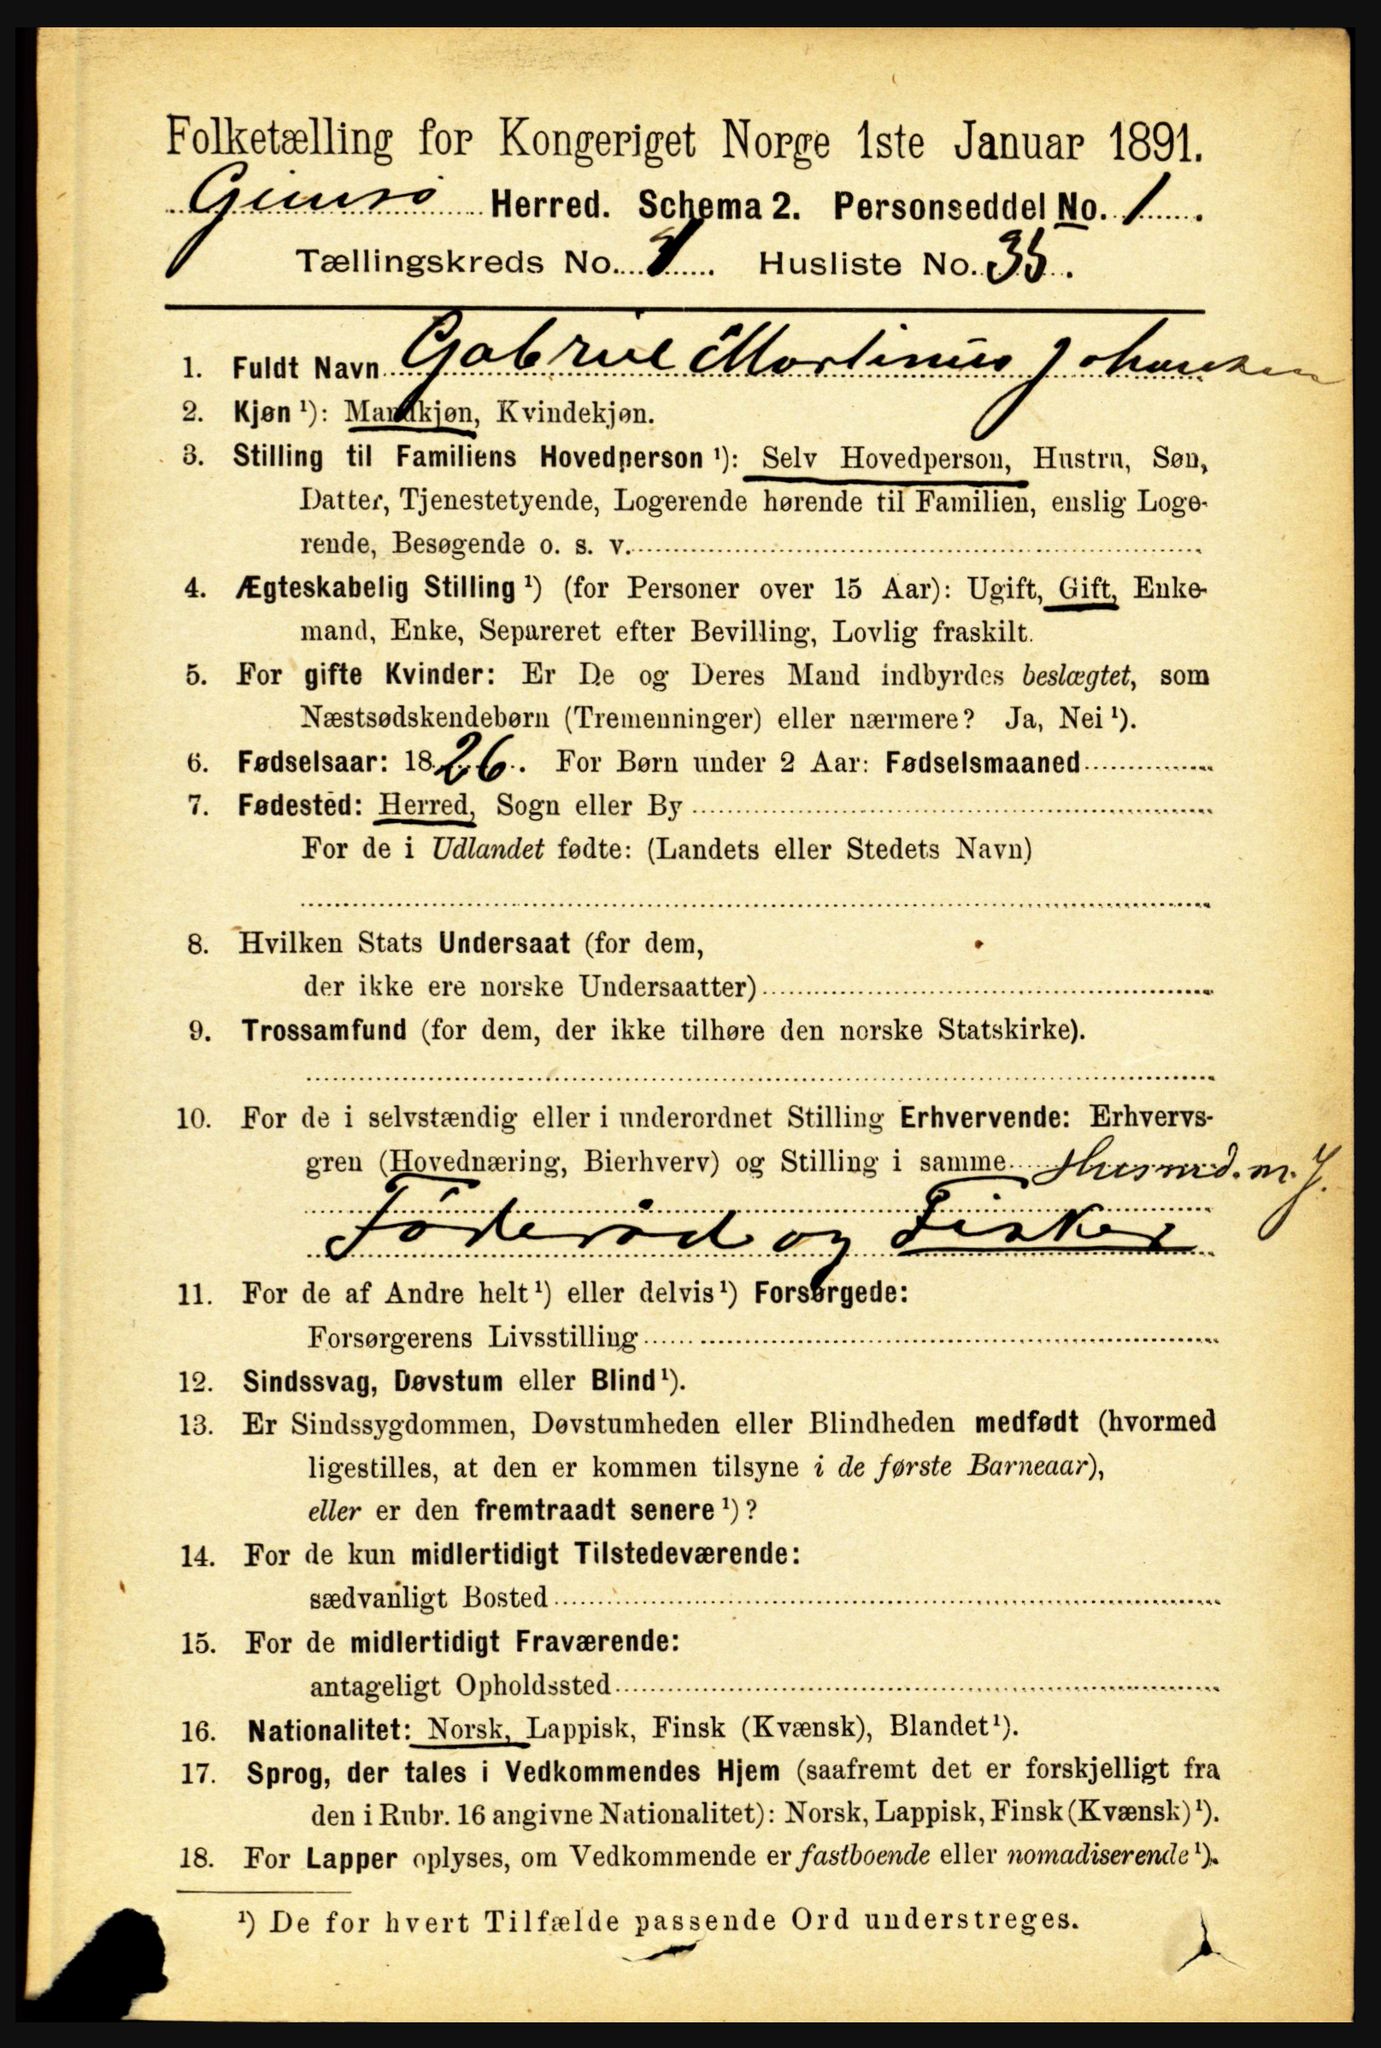 Folketælling for Kongeriget Norge 1ste Januar 1891.
Gimsø Herred. Schema 2. Personseddel No. 1.
Tællingskreds No. . Husliste No. 35.
1. Fuldt Navn Gabriel Martinus Johansen
2. Kjøn ¹): Mandkjøn, Kvindekjøn.
3. Stilling til Familiens Hovedperson ¹): Selv Hovedperson, Hustru, Søn,
Datter, Tjenestetyende, Logerende hørende til Familien, enslig Loge-
rende, Besøgende o. s. v.
4. Ægteskabelig Stilling ¹) (for Personer over 15 Aar): Ugift, Gift, Enke-
mand, Enke, Separeret efter Bevilling, Lovlig fraskilt.
5. For gifte Kvinder: Er De og Deres Mand indbyrdes beslægtet, som
Næstsødskendebørn (Tremenninger) eller nærmere? Ja, Nei ¹).
6. Fødselsaar: 1826. For Børn under 2 Aar: Fødselsmaaned
7. Fødested: Herred, Sogn eller By
For de i Udlandet fødte: (Landets eller Stedets Navn)
8. Hvilken Stats Undersaat (for dem,
der ikke ere norske Undersaatter)
9. Trossamfund (for dem, der ikke tilhøre den norske Statskirke).
10. For de i selvstændig eller i underordnet Stilling Erhvervende: Erhvervs-
gren (Hovednæring, Bierhverv) og Stilling i samme Husmd. m. J.
Föderåd og Fisker
11. For de af Andre helt ¹) eller delvis ¹) Forsørgede:
Forsørgerens Livsstilling
12. Sindssvag, Døvstum eller Blind ¹).
13. Er Sindssygdommen, Døvstumheden eller Blindheden medfødt (hvormed
ligestilles, at den er kommen tilsyne i de første Barneaar),
eller er den fremtraadt senere ¹)?
14. For de kun midlertidigt Tilstedeværende:
sædvanligt Bosted
15. For de midlertidigt Fraværende:
antageligt Opholdssted
16. Nationalitet: Norsk, Lappisk, Finsk (Kvænsk), Blandet ¹).
17. Sprog, der tales i Vedkommendes Hjem (saafremt det er forskjelligt fra
den i Rubr. 16 angivne Nationalitet): Norsk, Lappisk, Finsk (Kvænsk) ¹).
18. For Lapper oplyses, om Vedkommende er fastboende eller nomadiserende ¹).
¹) De for hvert Tilfælde passende Ord understreges.